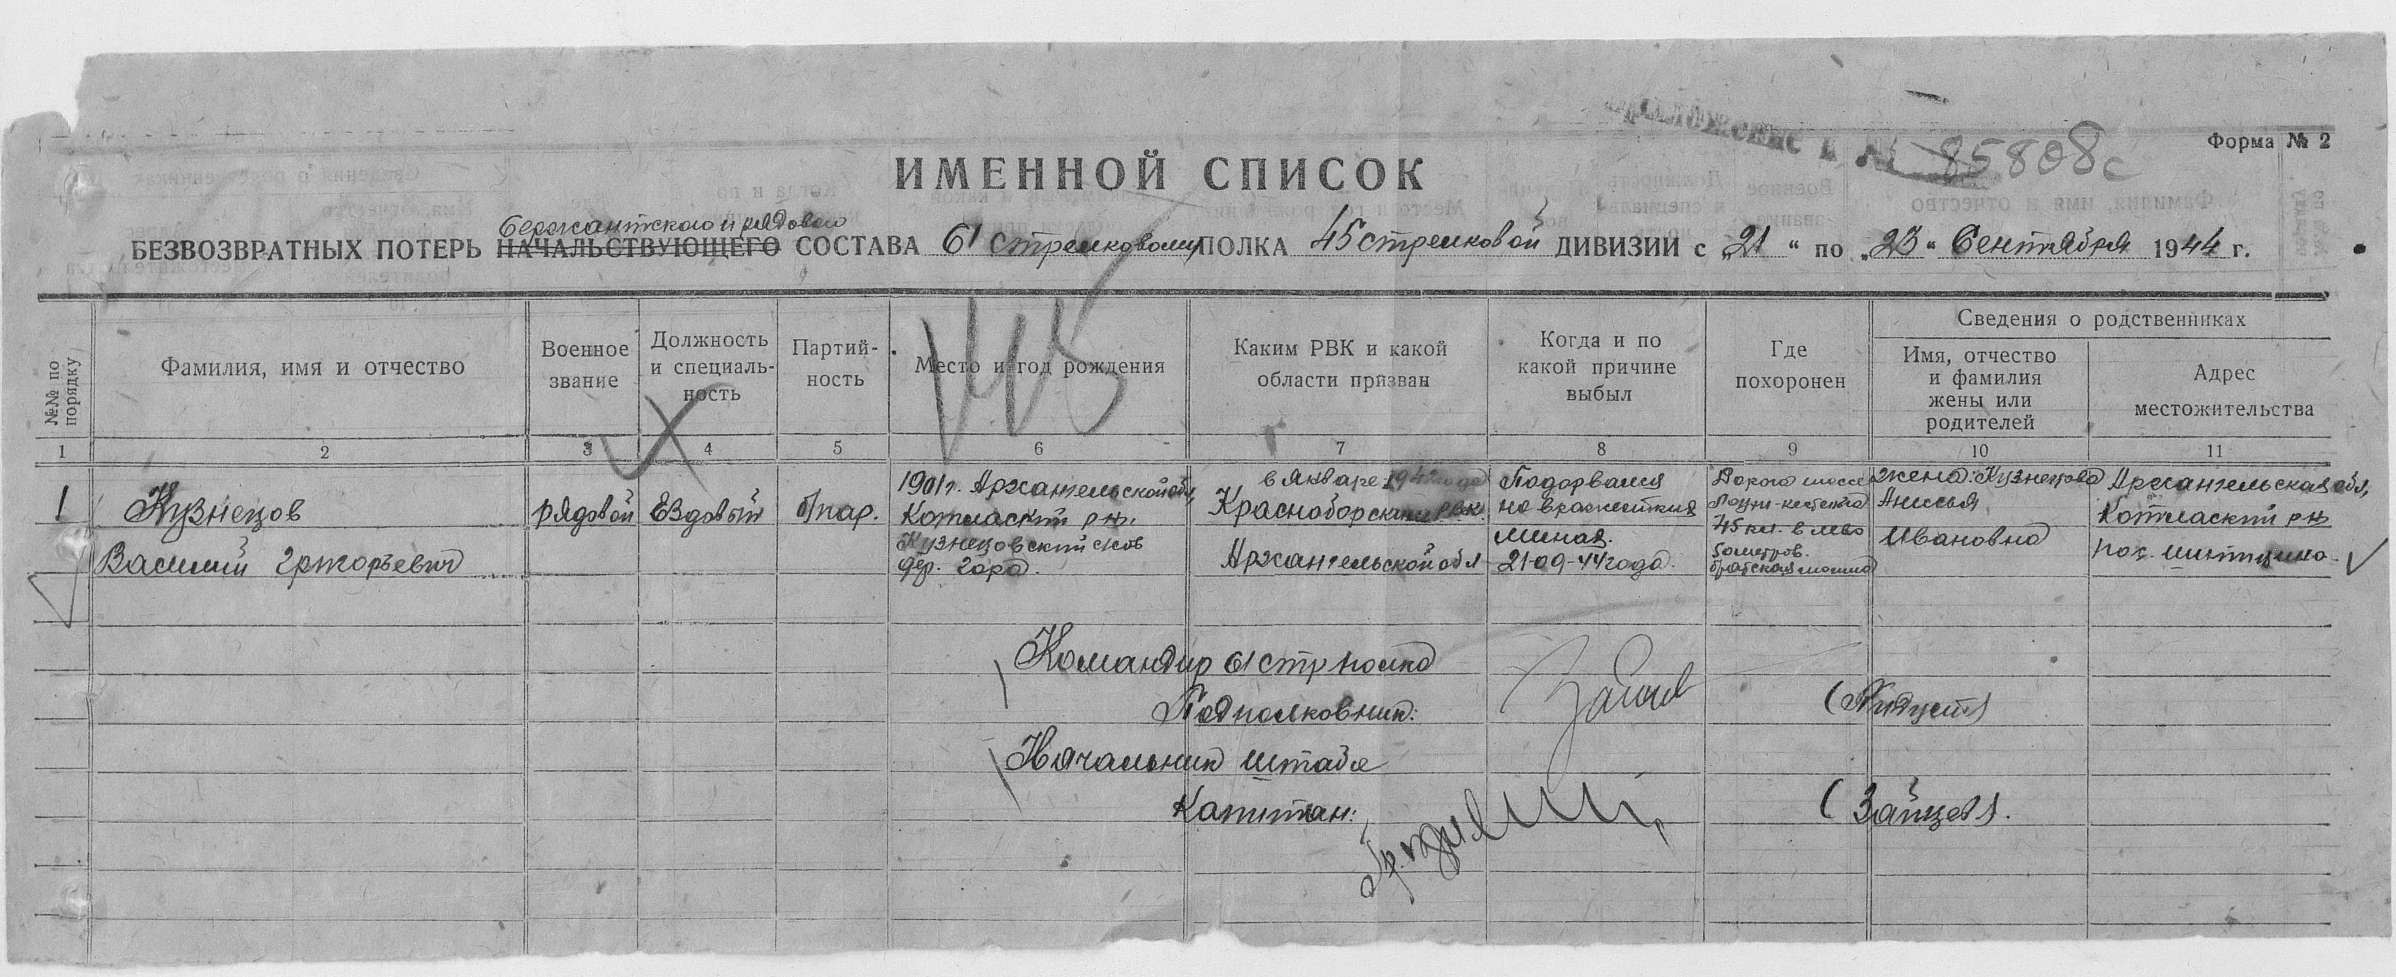 Приложение к № 85808с
Форма № 2
ИМЕННОЙ СПИСОК
Сержантского и рядового
БЕЗВОЗВРАТНЫХ ПОТЕРЬ НАЧАЛЬСТВУЮЩЕГО СОСТАВА 61 стрелковому ПОЛКА 45 стрелковой ДИВИЗИИ с „21“ по „23“ Сентября 1944 г.
№№ по порядку
Фамилия, имя и отчество
Военное звание
Должность и специальность
Партийность
Место и год рождения
Каким РВК и какой области призван
Когда и по какой причине выбыл
Где похоронен
Сведения о родственниках
Имя, отчество и фамилия жены или родителей
Адрес местожительства
1 2 3 4 5 6 7 8 9 10 11
1
Кузнецов
Василий Григорьевич
рядовой
Ездовый
б/пар.
1901г. Архангельской обл,
Котлаский р-н.
Кузнецовский с/сов
дер. Гора.
в Январе 194 года
Красноборским РВК.
Архангельской обл
Подорвался
на вражеских
минах.
21-09-44 года.
Дорога шоссе
45 км. в лево
50 метров.
братская могила
жена: Кузнецова
Анисья
Ивановна
Архангельская обл,
Котлаский р-н
пос.
Командир 61 стр полка
Подполковник:
Начальник штаба
Капитан:
(Зайцев).